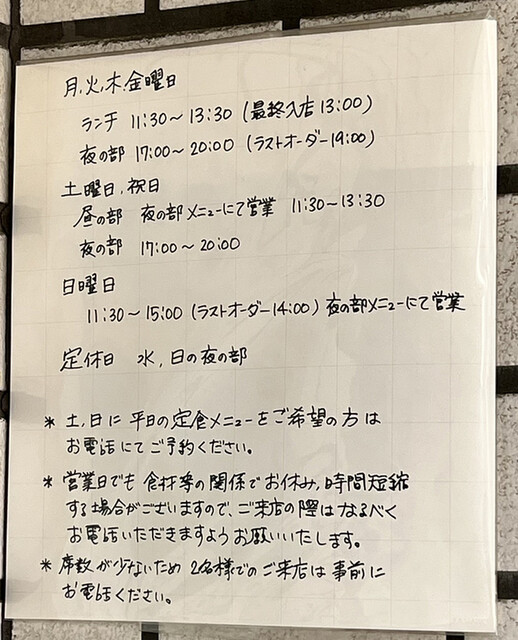 月,火,木,金曜日
ランチ 11:30～13:30 (最終入店 13:00)
夜の部 17:00～20:00 (ラストオーダー19:00)
土曜日,祝日
昼の部 夜の部メニューにて営業 11:30～13:30
夜の部 17:00～20:00
日曜日
11:30～15:00 (ラストオーダー14:00) 夜の部メニューにて営業
定休日 水,日の夜の部
* 土,日に 平日の定食メニューをご希望の方は
お電話にてご予約ください。
* 営業日でも 食材等の関係でお休み,時間短縮
する場合がございますので、ご来店の際はなるべく
お電話いただきますようお願いいたします。
* 席数が少ないため 2名様でのご来店は事前に
お電話ください。